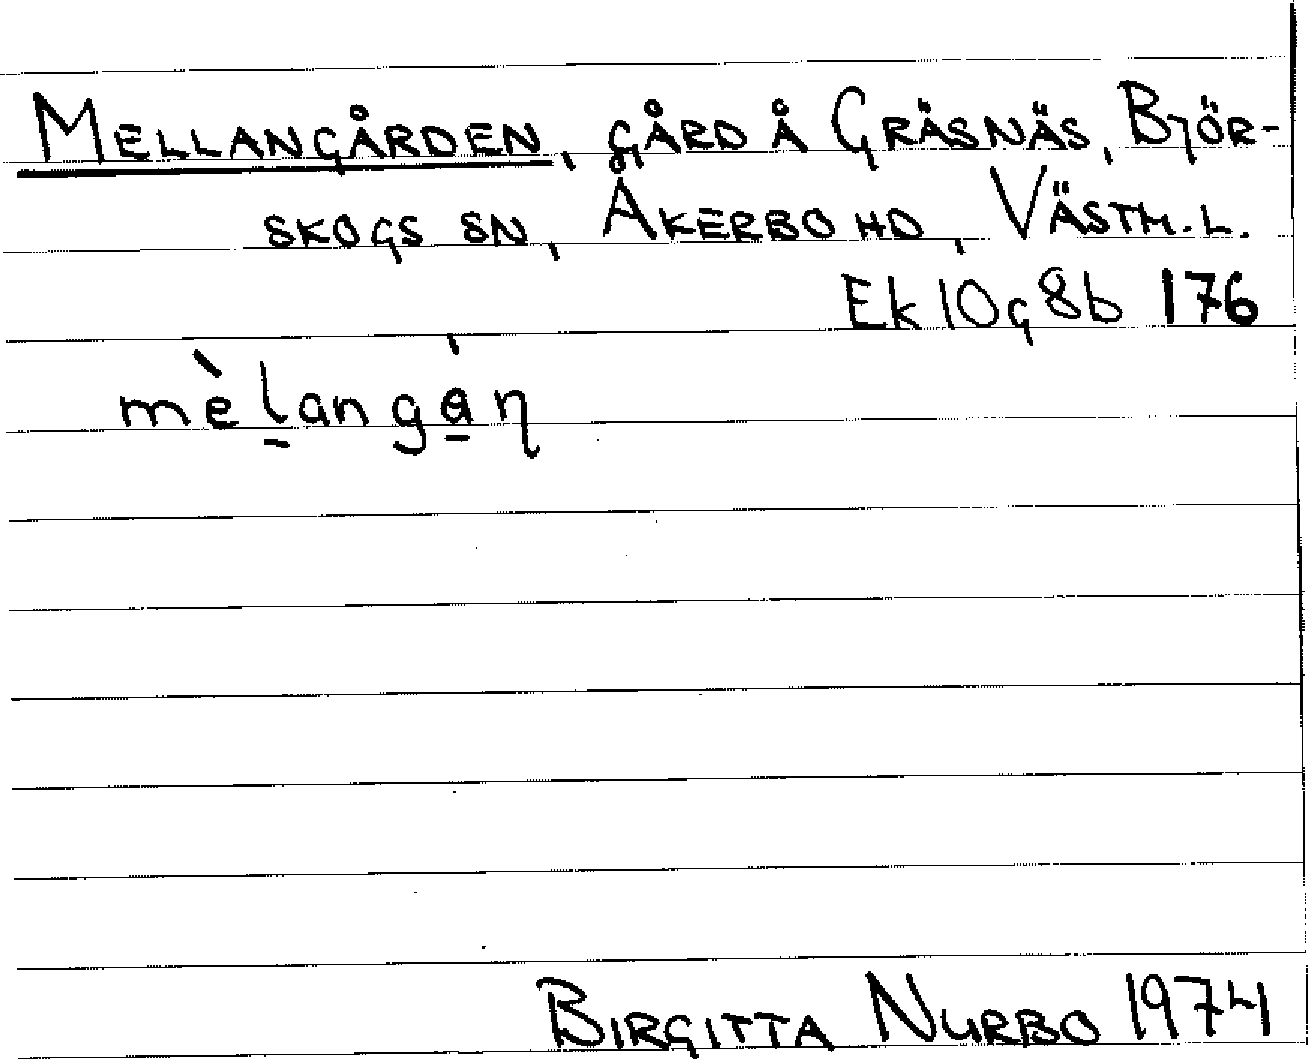 MELLANGÅRDEN, GÅRD Å GRÄSNÄS, BJÖR-
SKOGS SN, ÅKERBO HD, VÄSTM.L.
Ek 10g8b 176
mè̀l̠angá̠ɳ
BIRGITTA NURBO 1974